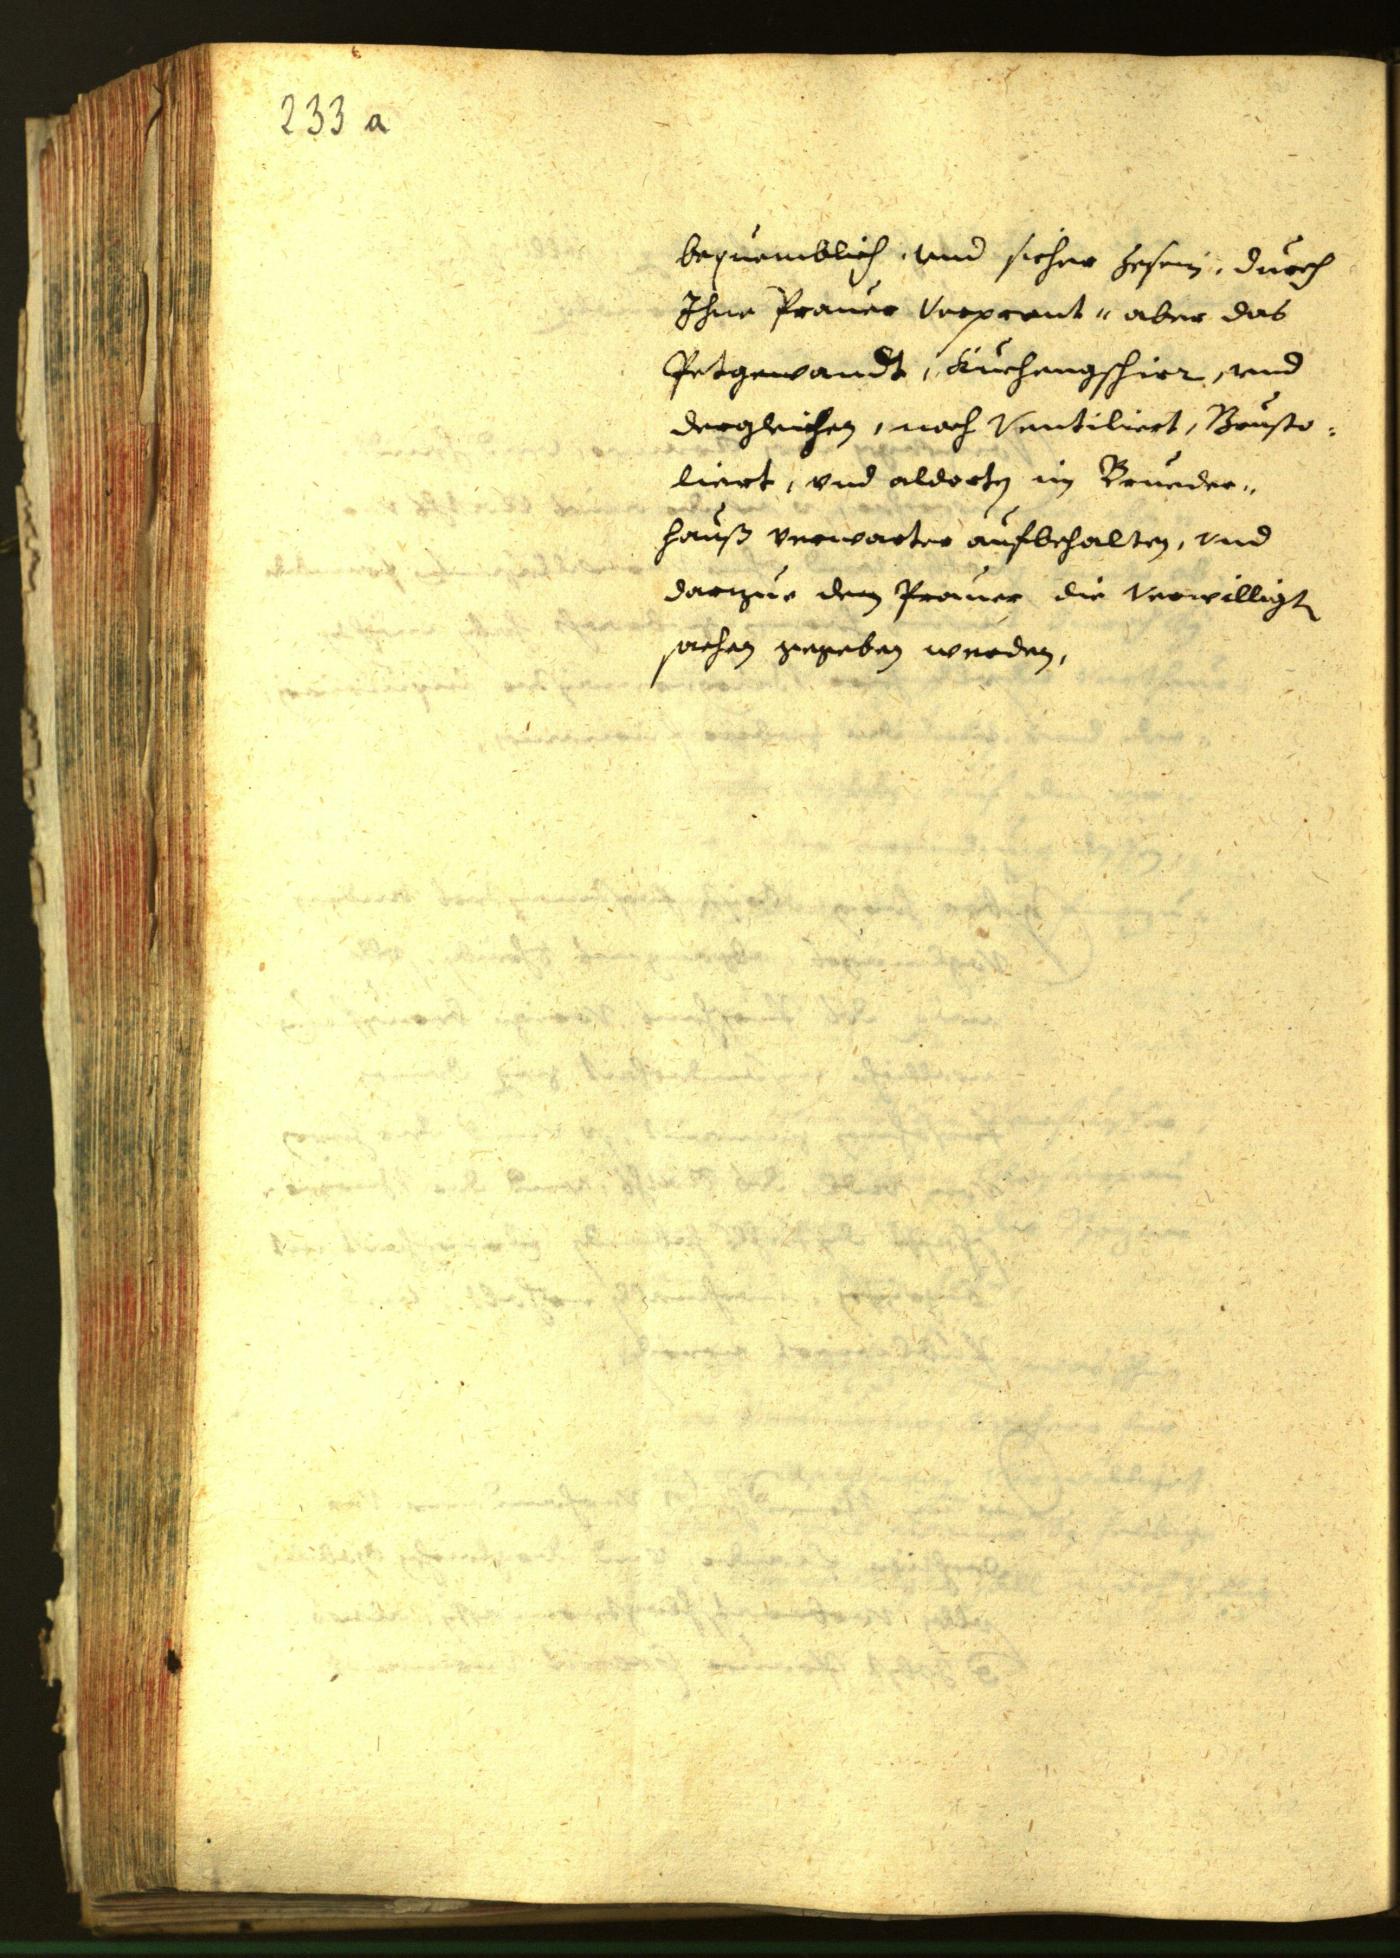 233 a
bequemblich, vnd sicher zesein, durch
Ihne Prauer Verprent " aber das
Petgewandt, Kuchengschirr, vnd
dergleichen, noch Ventiliert, Brusto⸗
liert, vnd aldorten im Brueder"
hauß verwarter aufbehalten, vnd
darzue dem Prauer die Verwilligt
sachen gegeben werden,